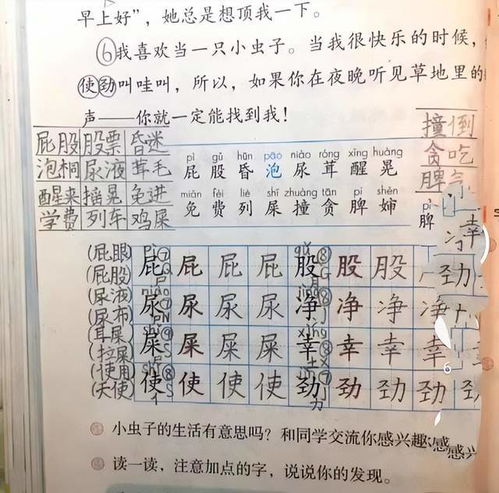 早上好”，她总是想顶我一下。
⑥我喜欢当一只小虫子。当我很快乐的时候，
使劲叫哇叫，所以，如果你在夜晚听见草地里的
声——你就一定能找到我！
屁股 股票 昏迷 撞倒
泡桐 尿液 茸毛 贪吃
醒来 摇晃 免进 脾气
学费 列车 鸡屎
pì gǔ hūn pāo niào róng xǐng huàng
屁 股 昏 泡 尿 茸 醒 晃
miǎn fèi liè shǐ zhuàng tān pí shěn
免 费 列 屎 撞 贪 脾 婶
pí
脾
(屁眼)
(屁股) 屁 屁 屁 屁 股 股 股
(尿液)
(尿布) 尿 尿 尿 尿 净 净 净 净
(耳屎)
(拉屎) 屎 屎 屎 屎 幸 幸 幸 幸
(使用)
(天使) 使 使 使 使 劲 劲 劲 劲 劲
幸
劲
小虫子的生活有意思吗？和同学交流你感兴趣
读一读，注意加点的字，说说你的发现。